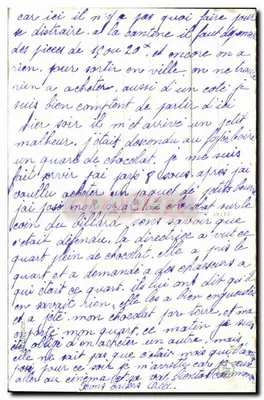 car ici il n'y a pas quoi faire pour
se distraire, a la cantine il faut dépenser
des pièces de 15 ou 20 et encore on a
rien, pour sortir en ville on ne trouve
rien a acheter, aussi d'un coté je
suis bien content de partir d'ici
hier soir il m'est arrivé un petit
malheur, j'étais descendu au foyer boire
un quart de chocolat, je me suis
fait servir j'ai payé 8 sous, après j'ai
voulu acheter un paquet de petits
j'ai posé mon quart sur le
coin du billard, sans savoir que
c'était défendu, la directrice a vu ce
quart plein de chocolat, elle a pris le
quart et a demandé a des chasseurs a
qui était ce quart, ils lui ont dit qu'il
en savait rien, elle les a bien engueulés
et a jeté mon chocolat par terre, et m'a
mon quart, ce matin je suis
obligé d'en acheter un autre, mais
elle ne sait pas que c'était moi qui l'avais
posé, pour ce soir je m'arrête car je veux
aller au cinéma et ça va bientôt commencer